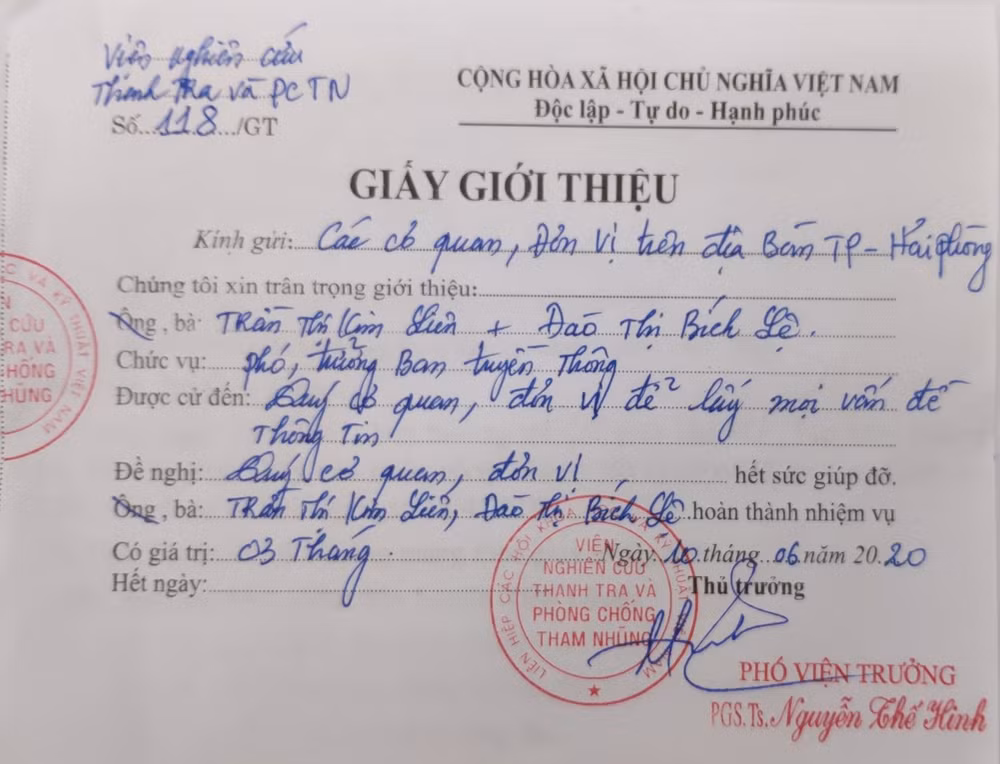 Viện nghiên cứu
Thanh Tra và PCTN
Số...118.../GT
CỘNG HÒA XÃ HỘI CHỦ NGHĨA VIỆT NAM
Độc lập - Tự do - Hạnh phúc
GIẤY GIỚI THIỆU
Kính gửi: Các cơ quan, Đơn vị trên địa Bàn TP - Hải phòng
Chúng tôi xin trân trọng giới thiệu:
Ông, bà: Trần Thị Kim Liên + Đào Thị Bích Lệ.
Chức vụ: phó, trưởng Ban tuyền Thông
Được cử đến: Quý cơ quan, đơn vị để lấy mọi vấn đề
Thông Tin
Đề nghị: Quý cơ quan, đơn vị hết sức giúp đỡ.
Ông, bà: Trần Thị Kim Liên, Đào Thị Bích Lệ hoàn thành nhiệm vụ
Có giá trị: 03 Tháng.
Ngày 10 tháng 06 năm 20.20
Hết ngày:
Thủ trưởng
LIÊN HIỆP CÁC HỘI KHOA HỌC VÀ KỸ THUẬT VIỆT NAM
VIỆN
NGHIÊN CỨU
THANH TRA VÀ
PHÒNG CHỐNG
THAM NHŨNG
PHÓ VIỆN TRƯỞNG
PGS.Ts. Nguyễn Thế Hinh
C VÀ KỸ THUẬT VIỆT NAM
N
CỨU
RA VÀ
HỐNG
HŨNG